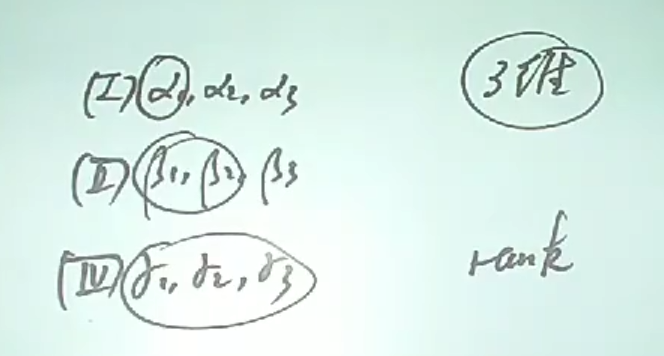 (I) α₁, α₂, α₃
3维
(II) β₁, β₂, β₃
(IV) γ₁, γ₂, γ₃
rank